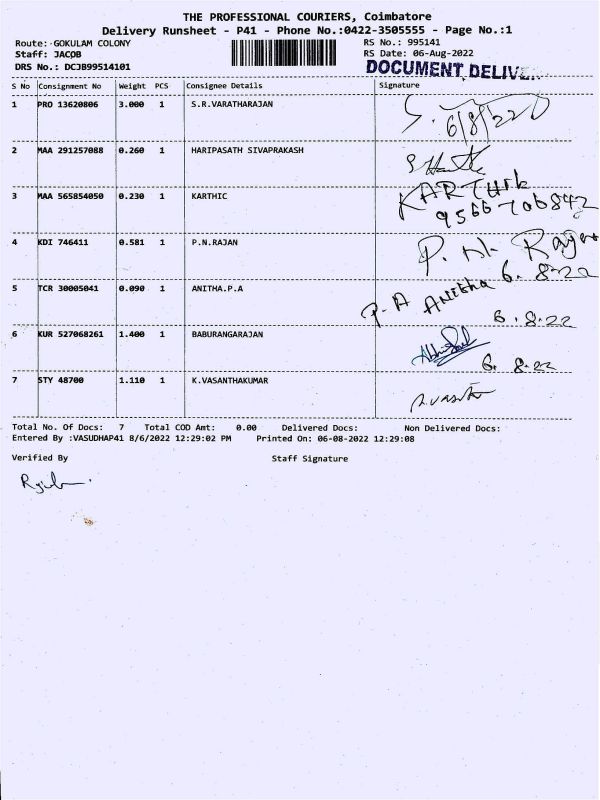 THE PROFESSIONAL COURIERS, Coimbatore
Delivery Runsheet - P41 - Phone No.:0422-3505555 - Page No.:1
Route: GOKULAM COLONY RS No.: 995141
Staff: JACOB RS Date: 06-Aug-2022
DRS No.: DCJB99514101 DOCUMENT DELIVE
S No Consignment No Weight PCS Consignee Details Signature
1 PRO 13620806 3.000 1 S.R.VARATHARAJAN
6/8/22
2 MAA 291257088 0.260 1 HARIPASATH SIVAPRAKASH
3 MAA 565854050 0.230 1 KARTHIC KARTHIK
9566706842
4 KDI 746411 0.581 1 P.N.RAJAN P. N. Rajan
6. 8-22
5 TCR 30005041 0.090 1 ANITHA.P.A P. A Anitha
6.8.22
6 KUR 527068261 1.400 1 BABURANGARAJAN
6. 8-22
7 STY 48700 1.110 1 K.VASANTHAKUMAR
Total No. Of Docs: 7 Total COD Amt: 0.00 Delivered Docs: Non Delivered Docs:
Entered By :VASUDHAP41 8/6/2022 12:29:02 PM Printed On: 06-08-2022 12:29:08
Verified By Staff Signature